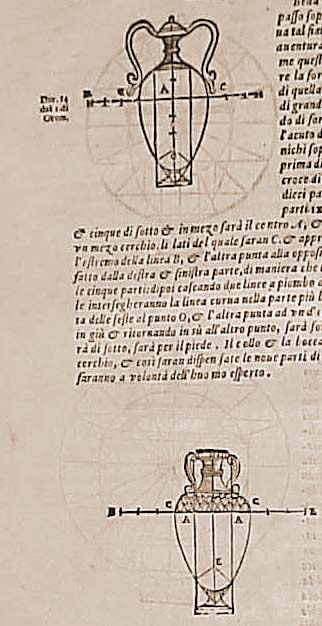 passo sop
ua tal fi
auentura
me quest
re la for
di quella
di grand
do di for
l'acuto d
nichi sop
prima di
croce di
dieci pa
parti ix
Dur. 14
del 1. di
Geom.
B C A C
& cinque di sotto & in mezo sarà il centro A, &
vn mezo cerchio, li lati del quale saran C, & appr
l'estremo della linea B, & l'altra punta alla opposi
fatto dalla destra & sinistra parte, di maniera che
le cinque parti: dipoi cascando due linee a piombo a
le intersegheranno la linea curua nella parte più
ra delle seste al punto O, & l'altra punta ad vn d'e
in giù & ritornando in sù all'altro punto, sarà for
rà di sotto, sarà per il piede. Il collo & la bocca
cerchio, & così saran dispensate le noue parti di
saranno a volontà dell'huomo esperto.
C C
B E
A A
E